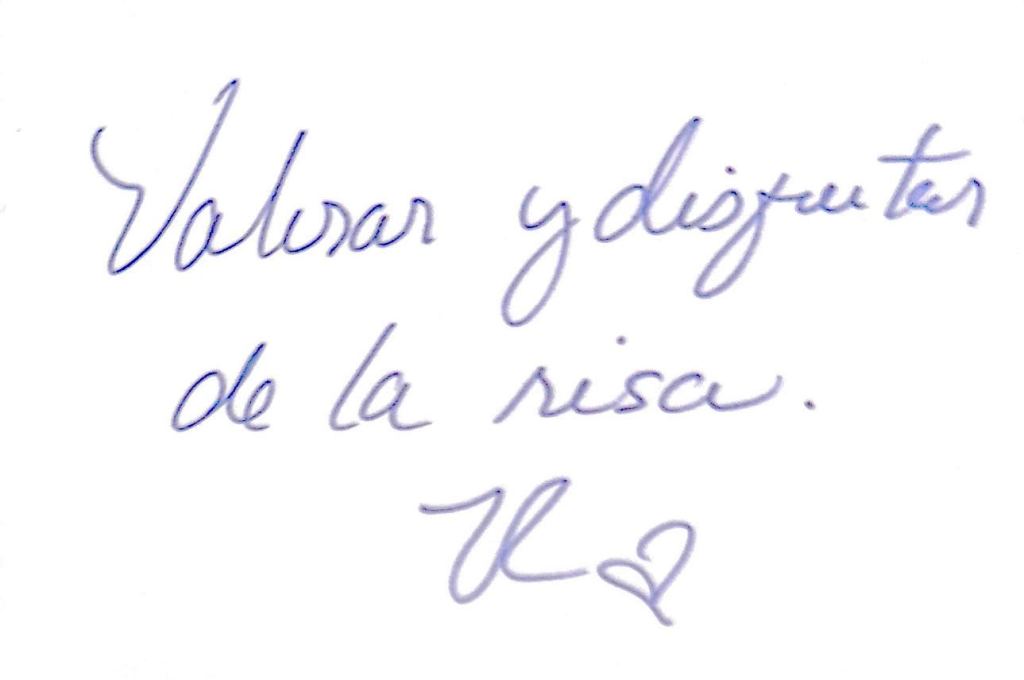 Valorar y disfrutar
de la risa.